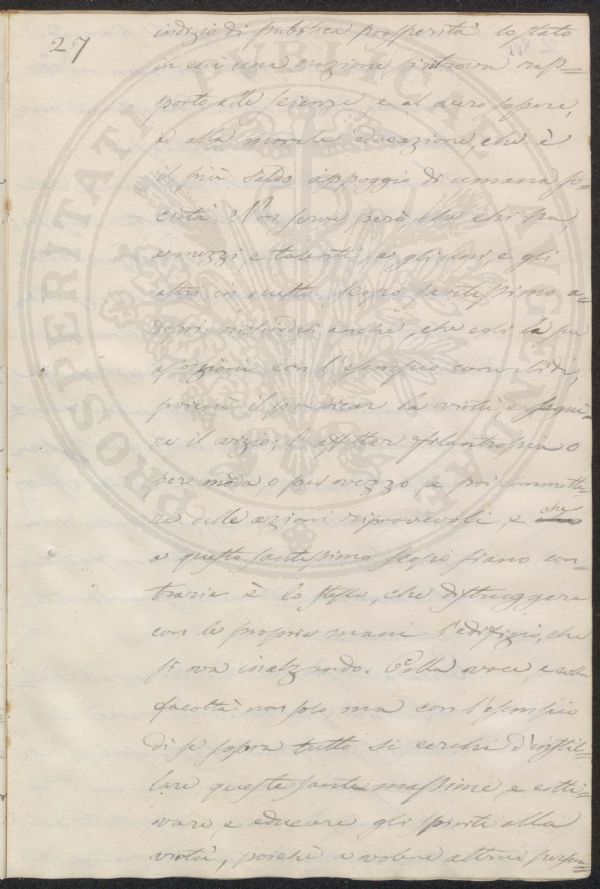 27
indizio di pubblica prosperità lo stato
in cui una nazione si ritrova rap-
porto alle scienze e al vero sapere,
e alla morale educazione, che è
il più saldo appoggio di umana so-
cietà. Non serve però, che chi ha,
e mezzi, e talenti, e gli uni, e gli
altri in questo scopo santissimo a-
dopri: richiedesi anche, che egli la sua
con l'esempio convalidi,
poichè il predicar la virtù, e segui-
re il vizio; l'affettar filantropia o
per moda, o per vezzo, e poi commette-
re delle azioni riprovevoli, e che
a questo santissimo scopo siano con-
trarie è lo stesso, che distruggere
con le proprie mani l'edifizio, che
si va inalzando. Colla voce, e colla
facoltà non solo, ma con l'esempio
di se sopra tutto si cerchi d'instil-
lare queste sante massime, e colti-
vare, e educare gli spiriti alla
virtù, poichè a volere altrui persua-
PROSPERITATI PUBLICAE AUGENDAE